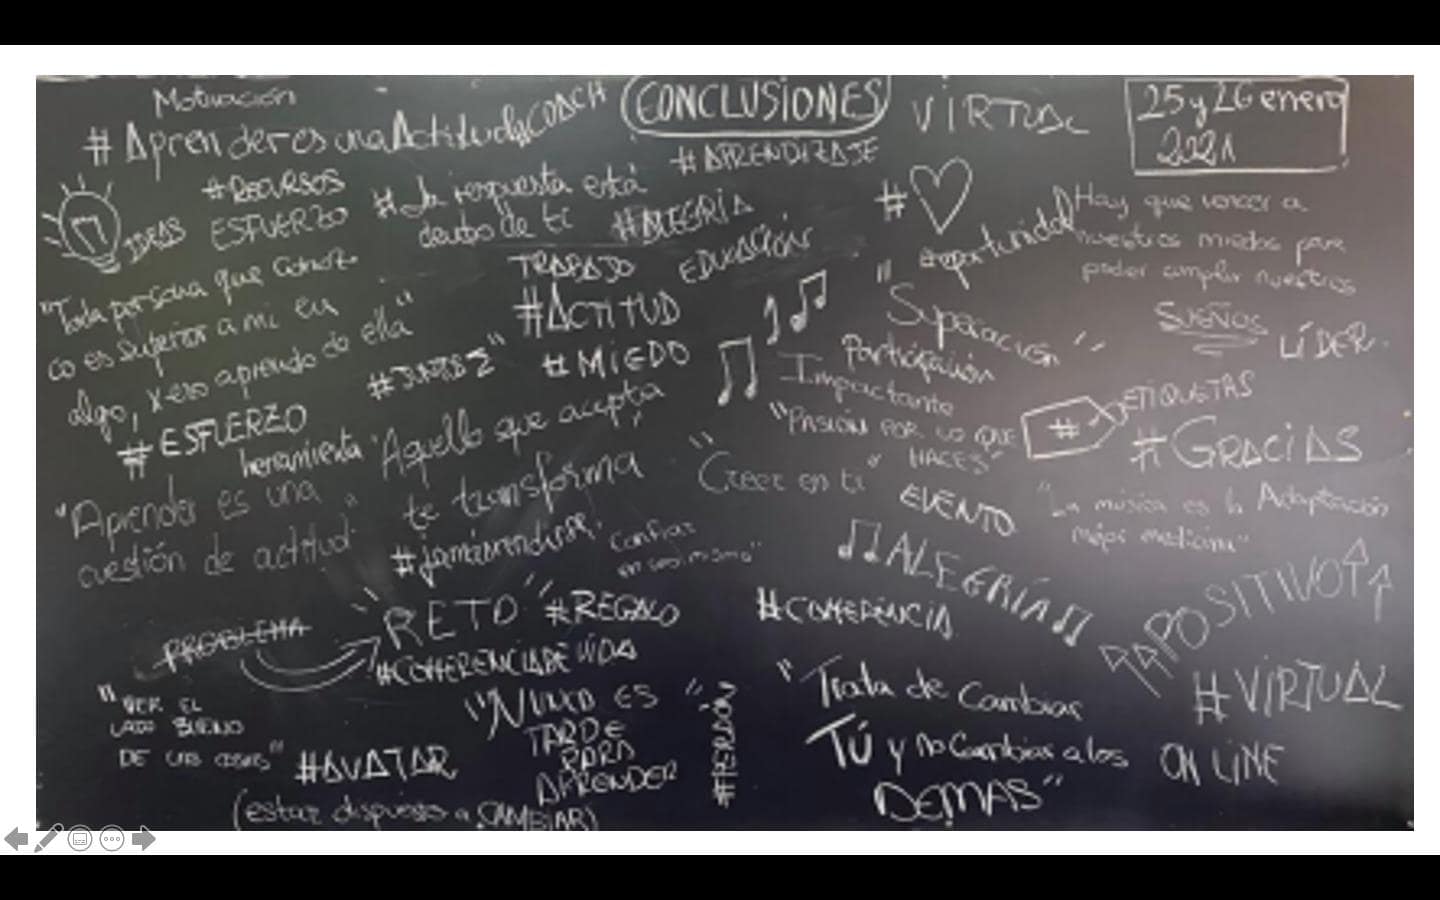 Motivación
#Aprender es una Actitud
COACH
CONCLUSIONES
VIRTUAL
25 y 26 enero
2021
#APRENDIZAJE
#RECURSOS
ESFUERZO
IDEAS
#La respuesta está
dentro de ti
#ALEGRÍA
EDUCACIÓN
TRABAJO
#ACTITUD
#MIEDO
#♡
oportunidad
Hay que vencer a
nuestros miedos para
poder cumplir nuestros
SUEÑOS
LÍDER
"Toda persona que
co es superior a mi en
algo, y eso aprendo de ella"
#ESFUERZO
herramienta
"Aquello que acepta
te transforma
"Superación"
Participación
Impactante
"PASIÓN POR LO QUE
HACES"
#
ETIQUETAS
#GRACIAS
"Creer en ti"
EVENTO
"La música es la
mejor medicina"
Adaptación
"Aprender es una
cuestión de actitud"
"Confiar
en uno mismo"
ALEGRÍA
POSITIVO
PROBLEMA
"RETO"
#REGALO
#CONFERENCIA
#CONFERENCIADEVIDA
#VIRTUAL
ON LINE
"VER EL
LADO BUENO
DE LAS COSAS"
#AVATAR
(estar dispuesto a CAMBIAR)
"NUNCA ES
TARDE
PARA
APRENDER"
#PERDÓN
"Trata de Cambiar
TÚ y no Cambiar a los
DEMAS"